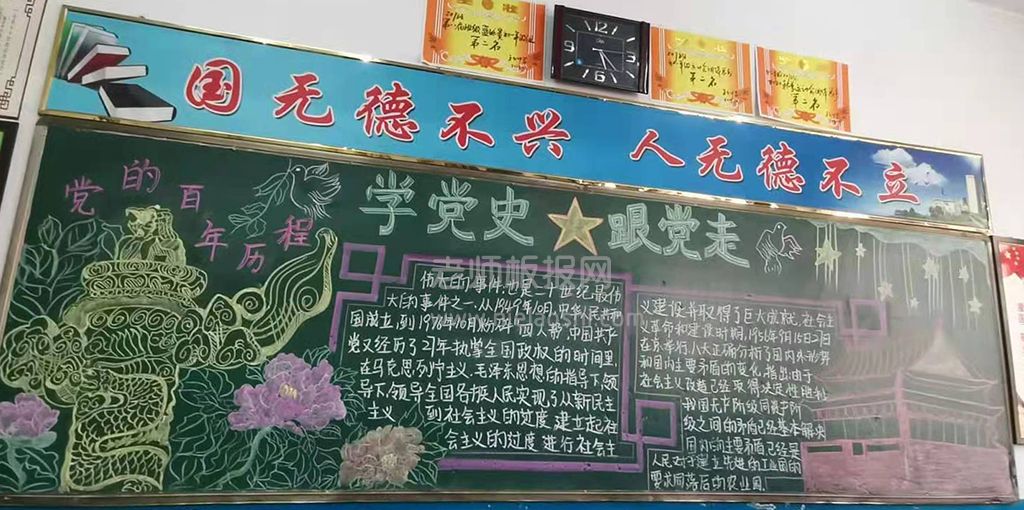 第二名
第二名
第二名
国无德不兴 人无德不立
党的百年历程
学党史 跟党走
伟大的事件,也是二十世纪最伟
大的事件之一,从1949年10月,中华人民共和
国成立,到1976年10月粉碎"四人帮",中国共产
党又经历了27年执掌全国政权的时间里,
在马克思列宁主义、毛泽东思想的指导下,领
导下,领导全国各族人民实现了从新民主
主义 到社会主义的过度 建立起社
会主义的过度 进行社会主
义建设并取得了巨大成就,社会主
义革命和建设时期,1956年9月15日-27日
在京举行八大正确分析了国内外形势
和国内主要矛盾的变化,指出由于
社会主义改造已经取得决定性胜利
我国无产阶级同资产阶
级之间的矛盾已经基本解决
国内的主要矛盾已经是
人民对于建立先进的工业国的
要求同落后的农业国.
老师板报网